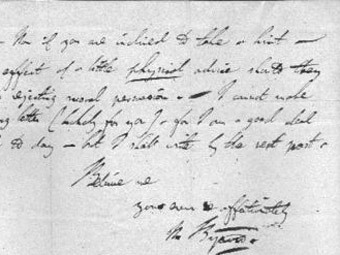 - Now if you are inclined to take a hint -
effect of a little physical advice should they
rejecting moral persuasion - I cannot make
letter (luckily for you) for I am a good deal
to day - but I shall write by the next post -
Believe me
yours ever affectionately